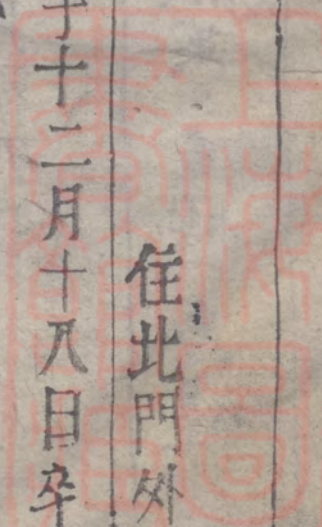 住北門外
于十二月十八日卒